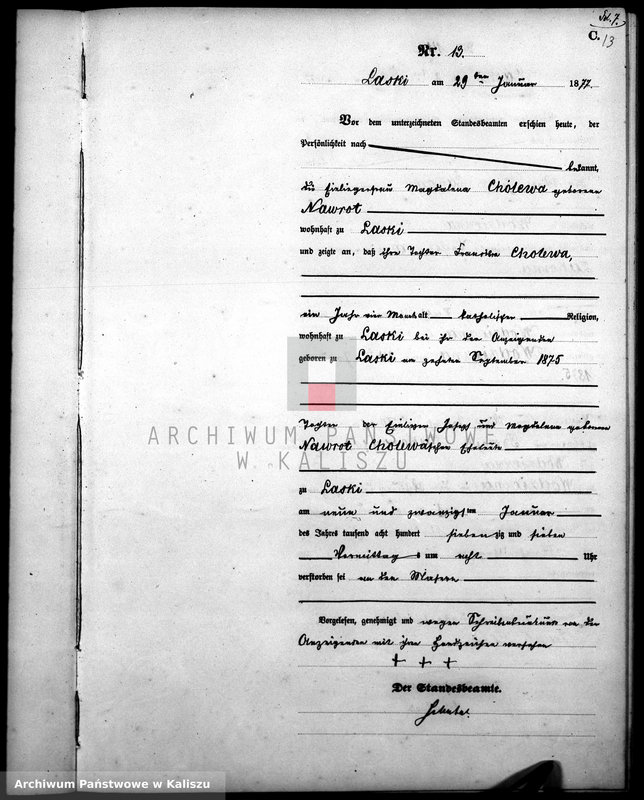 C.
13
Nr. 13.
Laski am 29ten Januar 1877.
Vor dem unterzeichneten Standesbeamten erschien heute, der
Persönlichkeit nach
bekannt,
die Einliegerfrau Magdalena Cholewa geborene
Nawrot
wohnhaft zu Laski
und zeigte an, daß ihre Tochter Franziska Cholewa,
ein Jahr vier Monat alt katholischer Religion,
wohnhaft zu Laski bei ihr der Anzeigenden
geboren zu Laski am zehnten September 1875
Tochter der Einlieger Joseph und Magdalena geborene
Nawrot Cholewa'schen Eheleute
zu Laski
am neun und zwanzigsten Januar
des Jahres tausend acht hundert siebenzig und sieben
Vormittags um acht Uhr
verstorben sei an den Masern
Vorgelesen, genehmigt und wegen Schreibensunkunde von der
Anzeigenden mit ihrem Handzeichen versehen
+ + +
Der Standesbeamte.
ARCHIWUM PAŃSTWOWE
W KALISZU
Archiwum Państwowe w Kaliszu